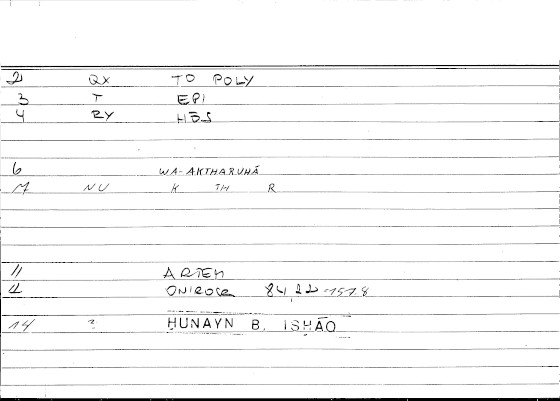 2 QX TO POLY
3 T EPI
4 RY HŌS
6 WA-AKTHARUHĀ
M NU K TH R
11 ARTEM
12 ONIROCR 84,22 157.8
14 ? ḤUNAYN B. ISḤĀQ